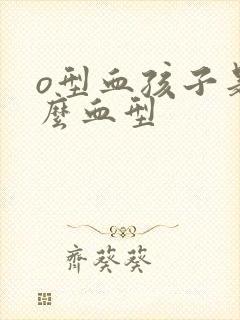 o型血孩子是
麼血型
齊葵葵